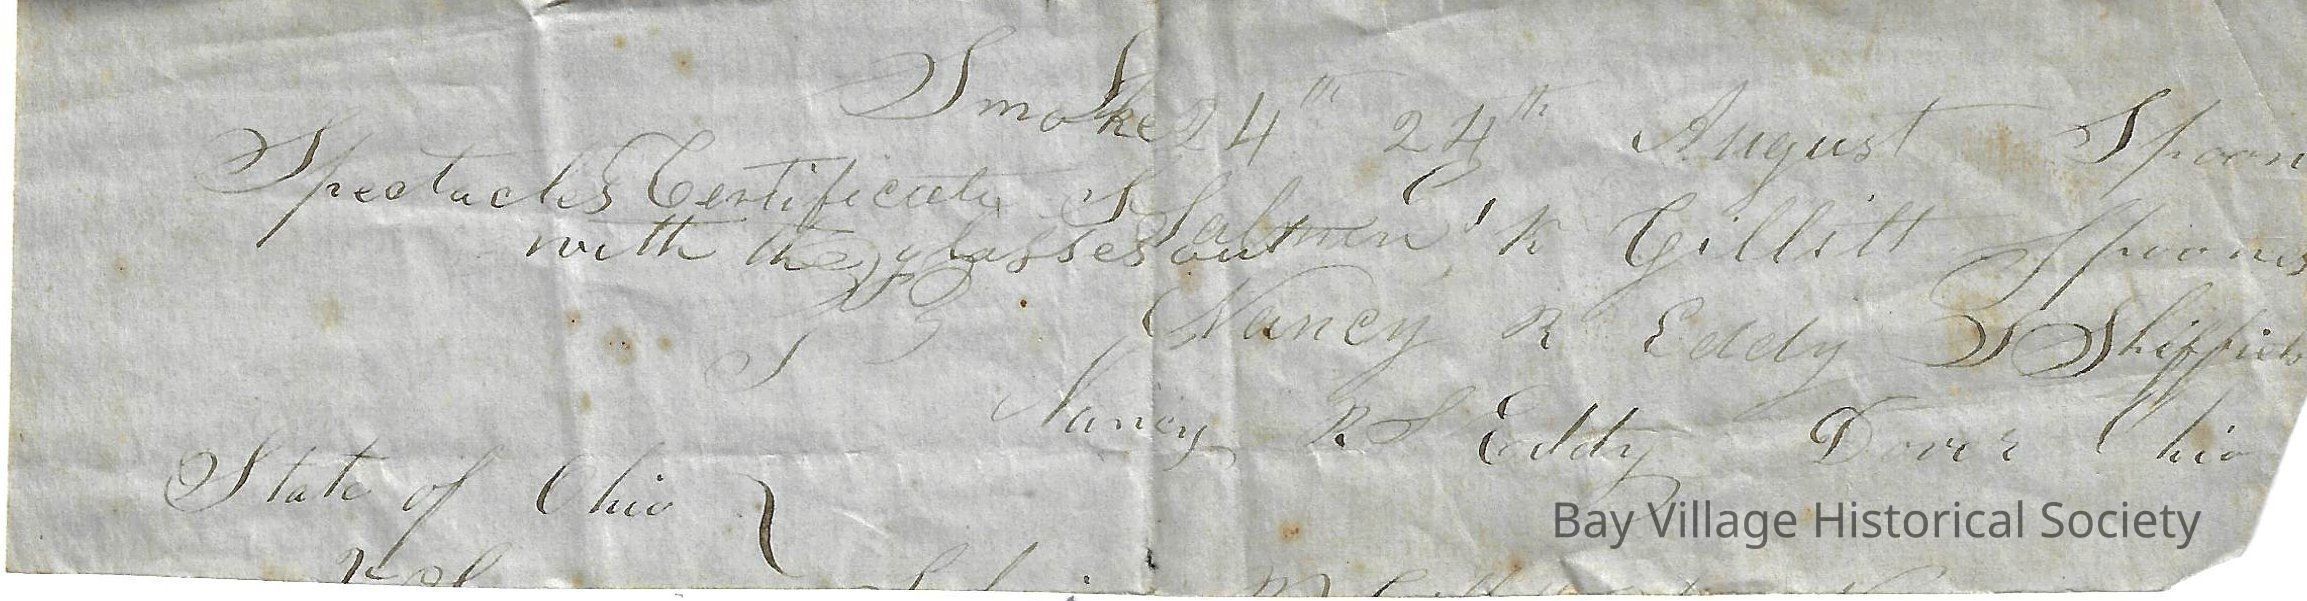 Smoke 24th 24th August Spoon
Spectacles Certificate S Salmon K Gillitt Spoons
with the glasses out
S B Nancy R Eddy S Shiffield
Nancy R S Eddy Dover Ohio
State of Ohio
Bay Village Historical Society